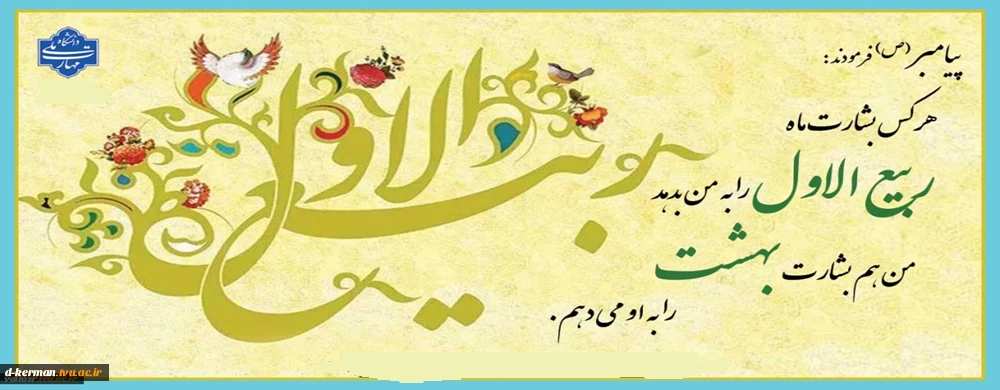 پیامبر (ص) فرمودند:
هر کس بشارت ماه
ربیع الاول را به من بدهد
من هم بشارت بهشت
را به او می دهم.
ربیع الاول
دانشگاه ملی مهارت
d-kerman.tvu.ac.ir